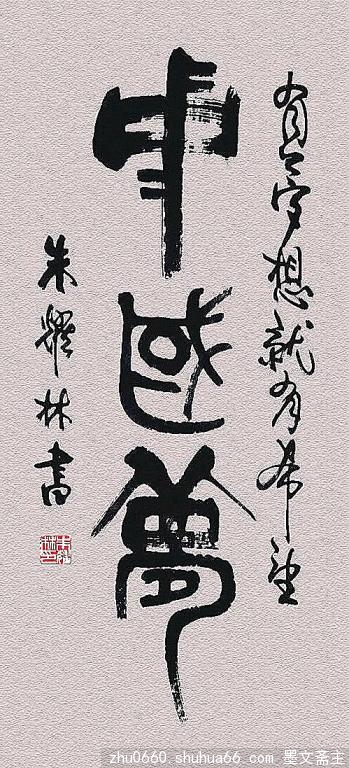 有夢想就有希望
中國夢
朱耀林書
zhu0660.shuhua66.com 墨文斋主